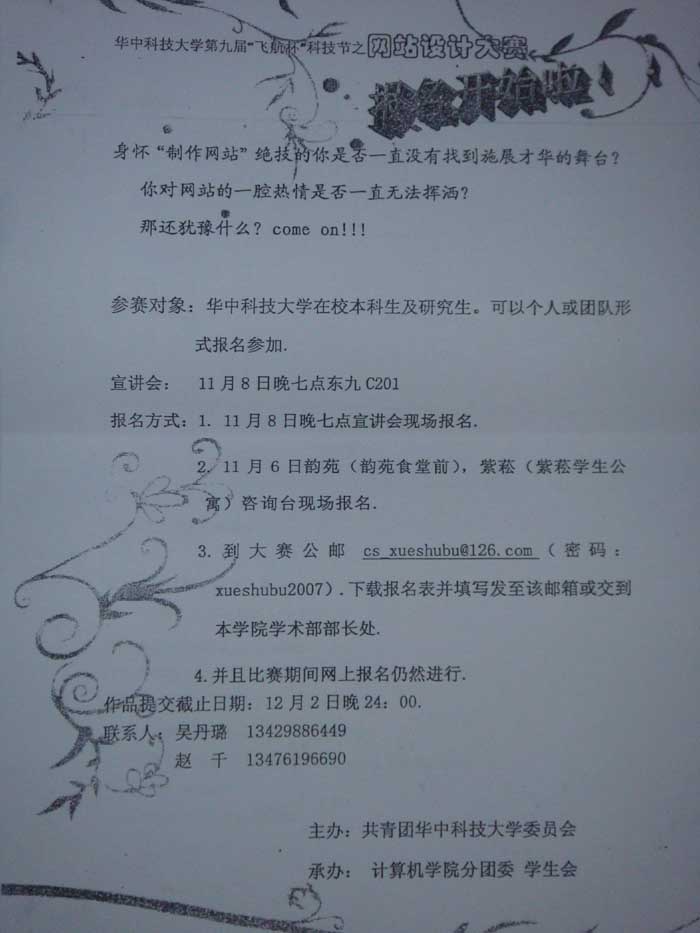 华中科技大学第九届“飞航杯”科技节之网站设计大赛
报名开始啦!
身怀“制作网站”绝技的你是否一直没有找到施展才华的舞台?
你对网站的一腔热情是否一直无法挥洒?
那还犹豫什么? come on!!!
参赛对象: 华中科技大学在校本科生及研究生。可以个人或团队形
式报名参加.
宣讲会: 11月8日晚七点东九C201
报名方式: 1. 11月8日晚七点宣讲会现场报名.
2. 11月6日韵苑(韵苑食堂前), 紫菘(紫菘学生公
寓)咨询台现场报名.
3. 到大赛公邮 cs_xueshubu@126.com (密码:
xueshubu2007).下载报名表并填写发至该邮箱或交到
本学院学术部部长处.
4.并且比赛期间网上报名仍然进行.
作品提交截止日期: 12月2日晚24: 00.
联系人: 吴丹璐 13429886449
赵 千 13476196690
主办: 共青团华中科技大学委员会
承办: 计算机学院分团委 学生会